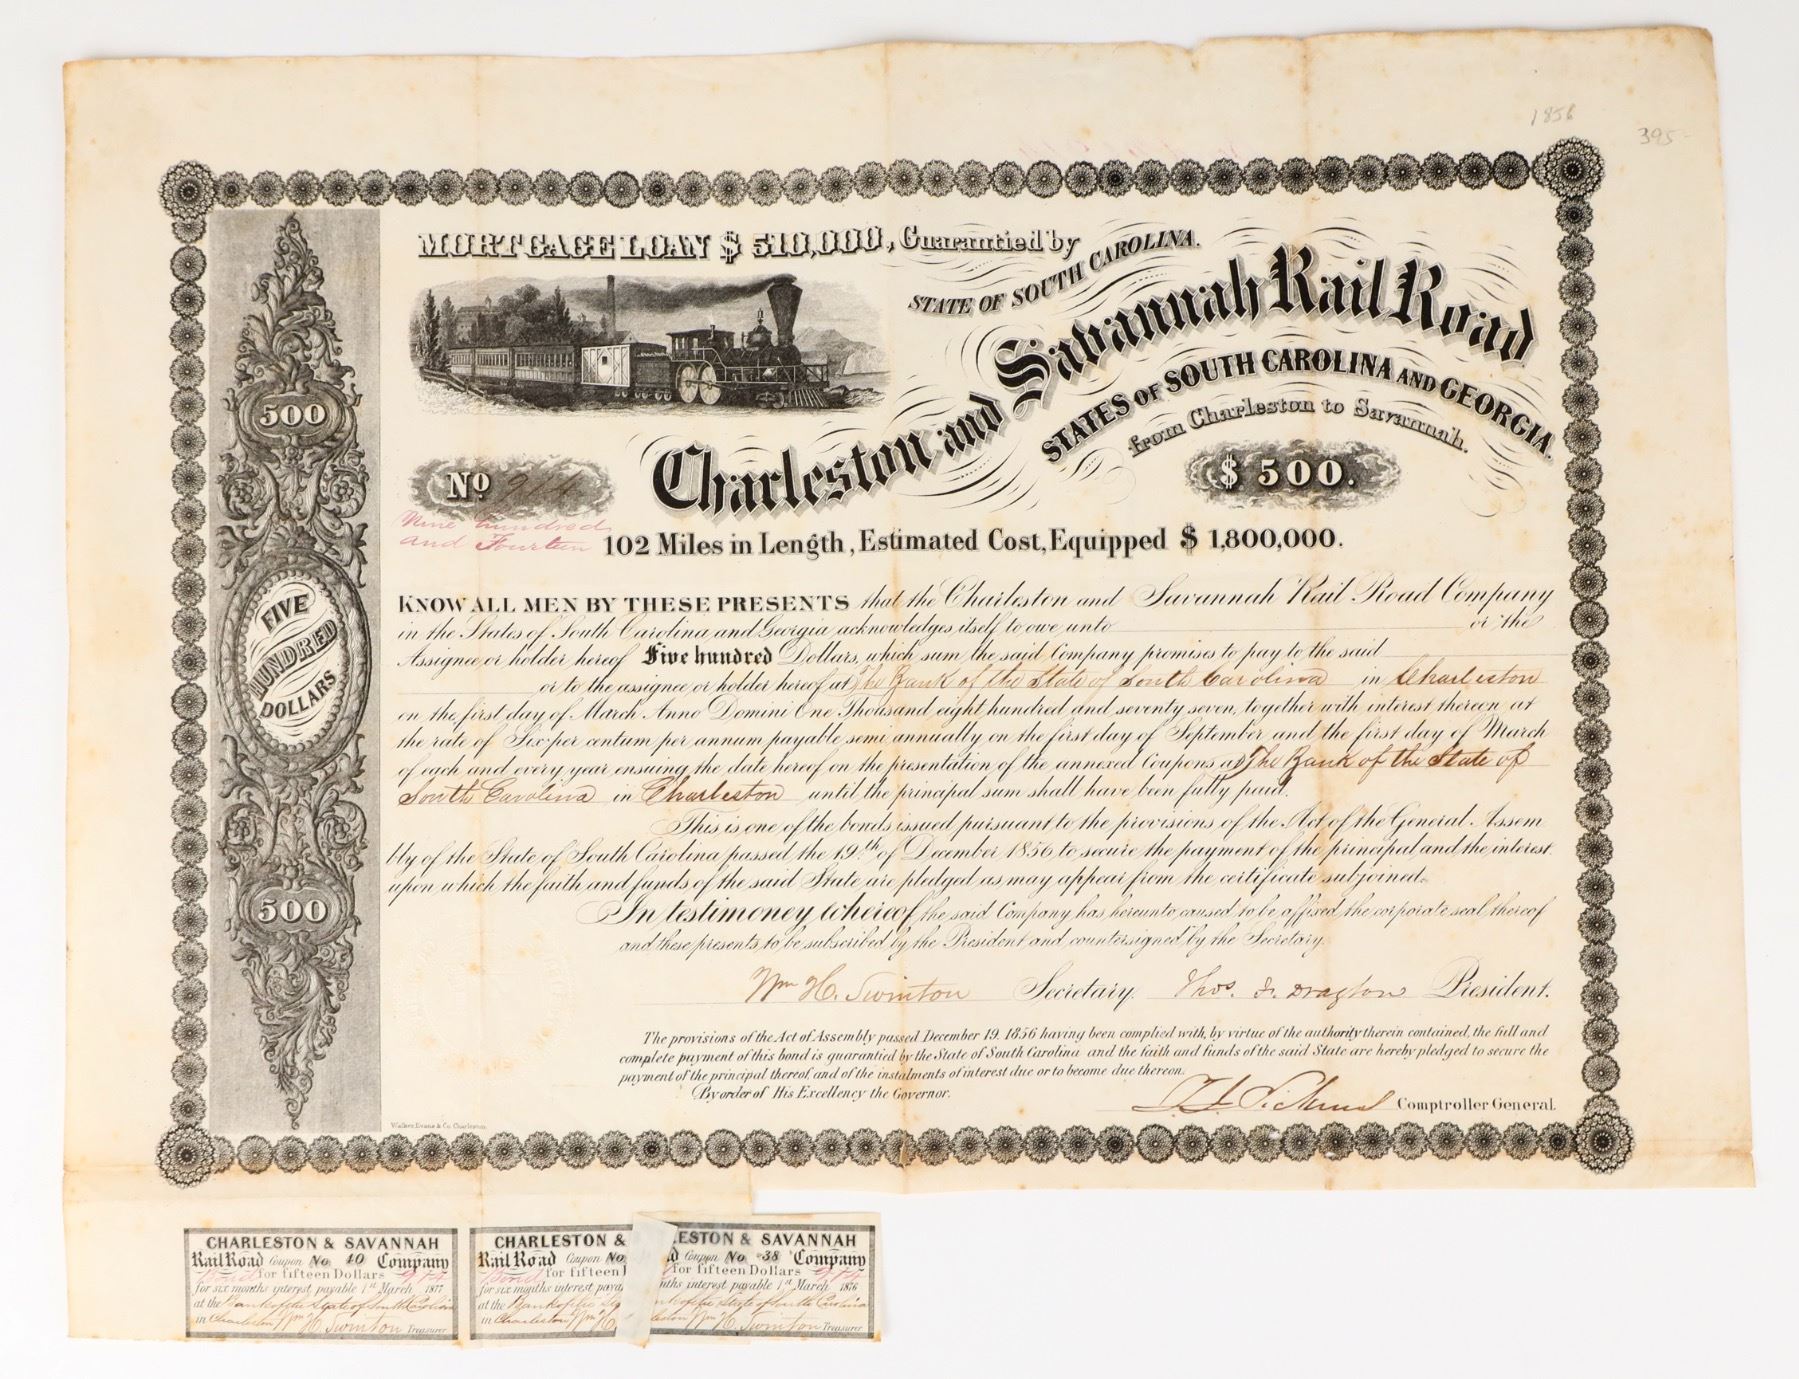 1856
395-
MORTGAGE LOAN $ 510,000, Guarantied by
STATE OF SOUTH CAROLINA.
Charleston and Savannah Rail Road
STATES OF SOUTH CAROLINA AND GEORGIA.
from Charleston to Savannah.
$ 500.
No 914
Nine hundred
and Fourteen
102 Miles in Length, Estimated Cost, Equipped $ 1,800,000.
500
FIVE
HUNDRED
DOLLARS
500
KNOW ALL MEN BY THESE PRESENTS that the Charleston and Savannah Rail Road Company
in the States of South Carolina and Georgia acknowledges itself to owe unto or the
Assignee or holder hereof Five hundred Dollars, which sum the said Company promises to pay to the said
or to the assignee or holder hereof at The Bank of the State of South Carolina in Charleston
on the first day of March Anno Domini One Thousand eight hundred and seventy seven, together with interest thereon at
the rate of Six per centum per annum payable semi annually on the first day of September and the first day of March
of each and every year ensuing the date hereof on the presentation of the annexed Coupons at The Bank of the State of
South Carolina in Charleston until the principal sum shall have been fully paid.
This is one of the bonds issued pursuant to the provisions of the Act of the General Assem
bly of the State of South Carolina passed the 19th of December 1856 to secure the payment of the principal and the interest
upon which the faith and funds of the said State are pledged as may appear from the certificate subjoined.
In testimony whereof the said Company has hereunto caused to be affixed the corporate seal thereof
and these presents to be subscribed by the President and countersigned by the Secretary.
Wm H. Swinton Secretary. Thos. F. Drayton President.
The provisions of the Act of Assembly passed December 19. 1856 having been complied with, by virtue of the authority therein contained, the full and
complete payment of this bond is guarantied by the State of South Carolina and the faith and funds of the said State are hereby pledged to secure the
payment of the principal thereof, and of the instalments of interest due or to become due thereon.
By order of His Excellency the Governor.
Comptroller General.
Walker, Evans & Co. Charleston.
CHARLESTON & SAVANNAH
Rail Road Coupon No 40 Company
Bond for fifteen Dollars 914
for six months interest payable 1st March 1877
at the Bank of the State of South Carolina
in Charleston Wm H. Swinton Treasurer
CHARLESTON &
Rail Road Coupon No
Bond for fifteen
for six months interest paya
at the Bank of the
in Charleston Wm H.
LESTON & SAVANNAH
d Coupon No 38 Company
for fifteen Dollars 914
nths interest payable 1st March 1876
nk of the State of South Carolina
leston Wm H. Swinton Treasurer